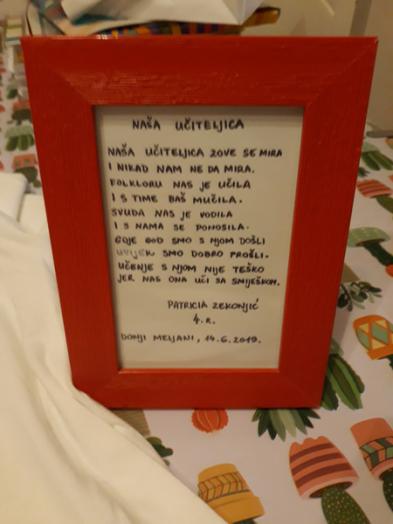 NAŠA UČITELJICA
NAŠA UČITELJICA ZOVE SE MIRA
I NIKAD NAM NE DA MIRA.
FOLKLORU NAS JE UČILA
I S TIME BAŠ MUČILA.
SVUDA NAS JE VODILA
I S NAMA SE PONOSILA.
GDJE GOD SMO S NJOM DOŠLI
UVIJEK SMO DOBRO PROŠLI.
UČENJE S NJOM NIJE TEŠKO
JER NAS ONA UČI SA SMIJEŠKOM.
PATRICIA ZEKONJIĆ
4.R.
DONJI MELJANI, 14.6.2019.